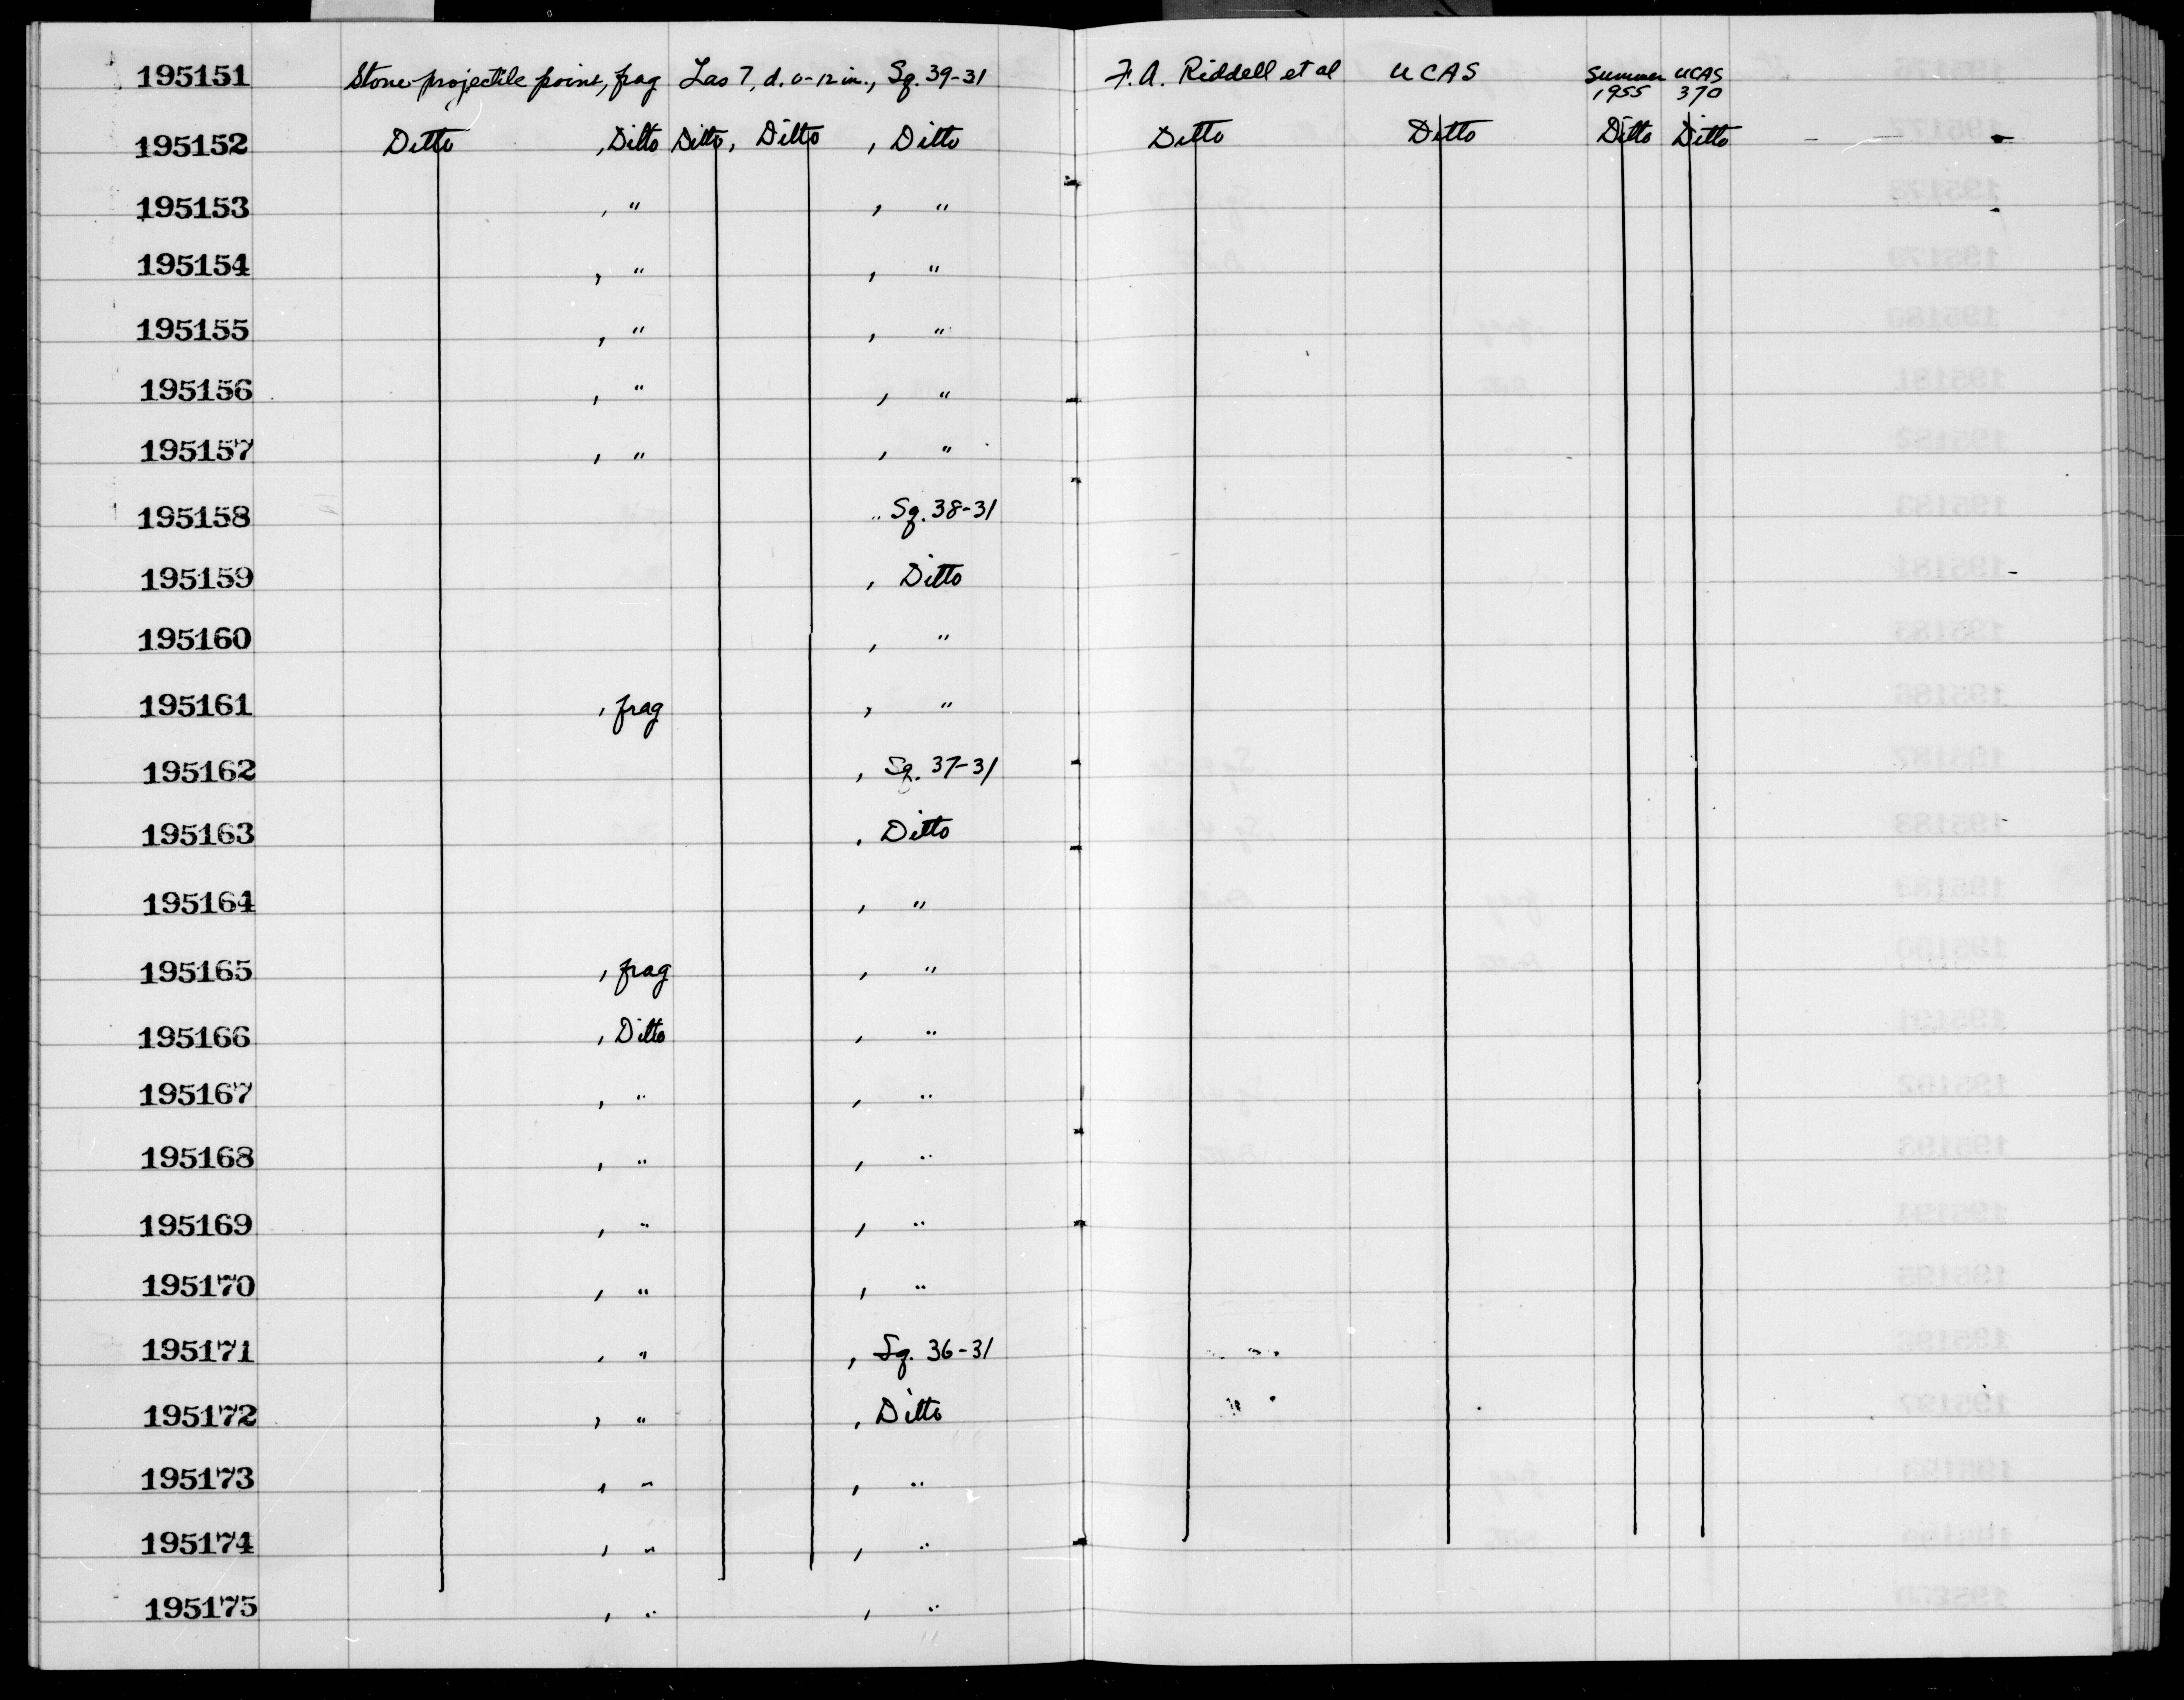 195151 Stone projectile point, frag Las 7, d. 0-12 in., Sq. 39-31 F. A. Riddell et al UCAS Summer 1955 UCAS 370
195152 Ditto , Ditto Ditto, Ditto , Ditto Ditto Ditto Ditto Ditto
195153 , " , "
195154 , " , "
195155 , " , "
195156 , " , "
195157 , " , "
195158 , Sq. 38-31
195159 , Ditto
195160 , "
195161 , frag , "
195162 , Sq. 37-31
195163 , Ditto
195164 , "
195165 , frag , "
195166 , Ditto , "
195167 , " , "
195168 , " , "
195169 , " , "
195170 , " , "
195171 , " , Sq. 36-31
195172 , " , Ditto
195173 , " , "
195174 , " , "
195175 , " , "